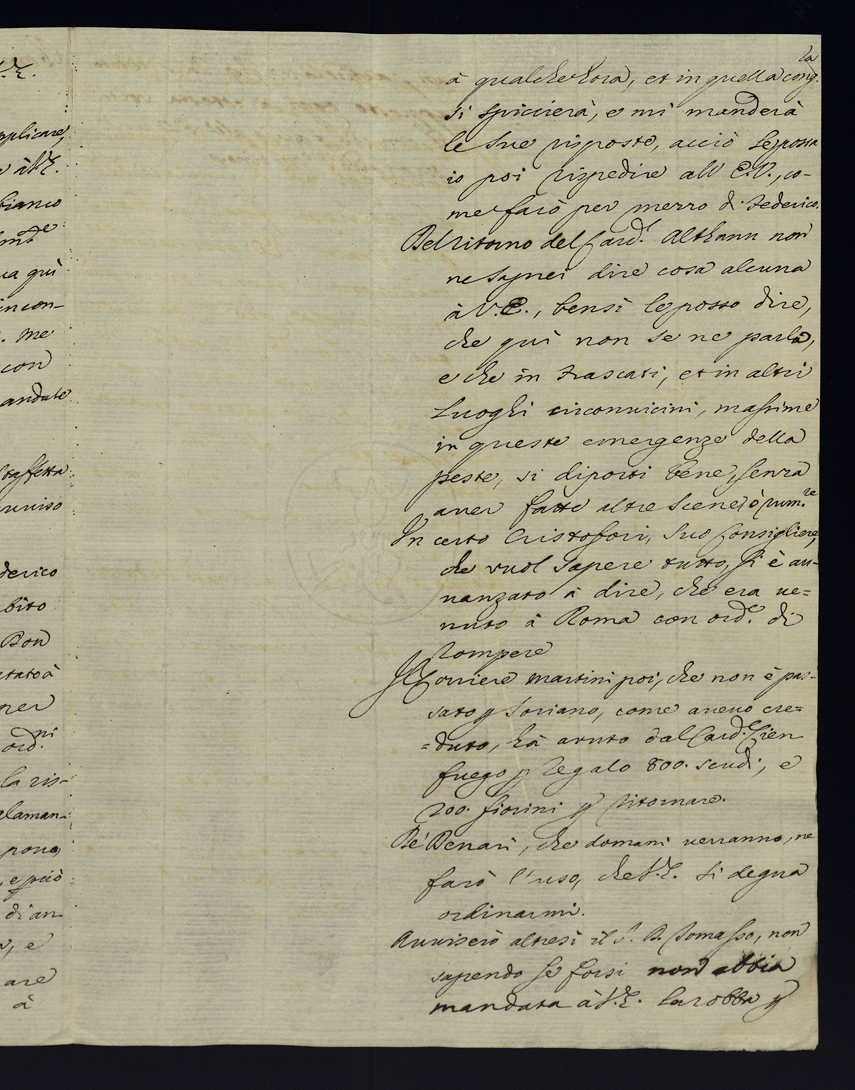 V.E.
applicare,
e à V.E.
bianco
ua quì
incon-
. me
con
andate
staffetta
auuiso
derico
bito
Bon
tato à
ner
ord.ni
la ris-
elaman-
poua
, e p ciò
di an-
, e
are
à
à qualche hora, et in quella cong.ra
si spiccierà, e mi manderà
le sue risposte, acciò le possa
io poi rispedire all' E.V., co-
me farò per mezzo di Federico.
Del ritorno del Card.l Althann non
ne saprei dire cosa alcuna
à V.E., bensì le posso dire,
che quì non se ne parla,
e che in Frascati, et in altri
Luoghi circonuicini, massime
in queste emergenze della
peste, si diporti bene, senza
auer fatte altre scene, ò rum.re
Un certo Cristofori, suo Consigliere,
che vuol sapere tutto, si è au-
uanzato à dire, che era ue=
nuto à Roma con ord.e di
Rompere
Il Corriere Martini poi, che non è pas-
sato p Soriano, come aueuo cre=
=duto, hà auuto dal Card.l Cien
fuego p regalo 800. scudi, e
200. fiorini p ritornare.
De' Denari, che domani uerranno, ne
farò l'uso, che V.E. si degna
ordinarmi.
Auuiserò altresì il S. D. Tomasso, non
sapendo se forsi non abbia
mandata à V.E. la robba p